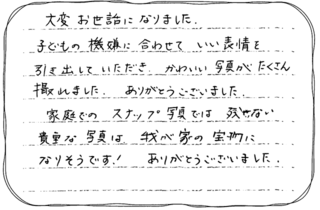 大変お世話になりました.
子どもの機嫌に合わせていい表情を
引き出していただき、かわいい写真がたくさん
撮れました. ありがとうございました.
家庭でのスナップ写真では残せない
貴重な写真は我が家の宝物に
なりそうです! ありがとうございました.